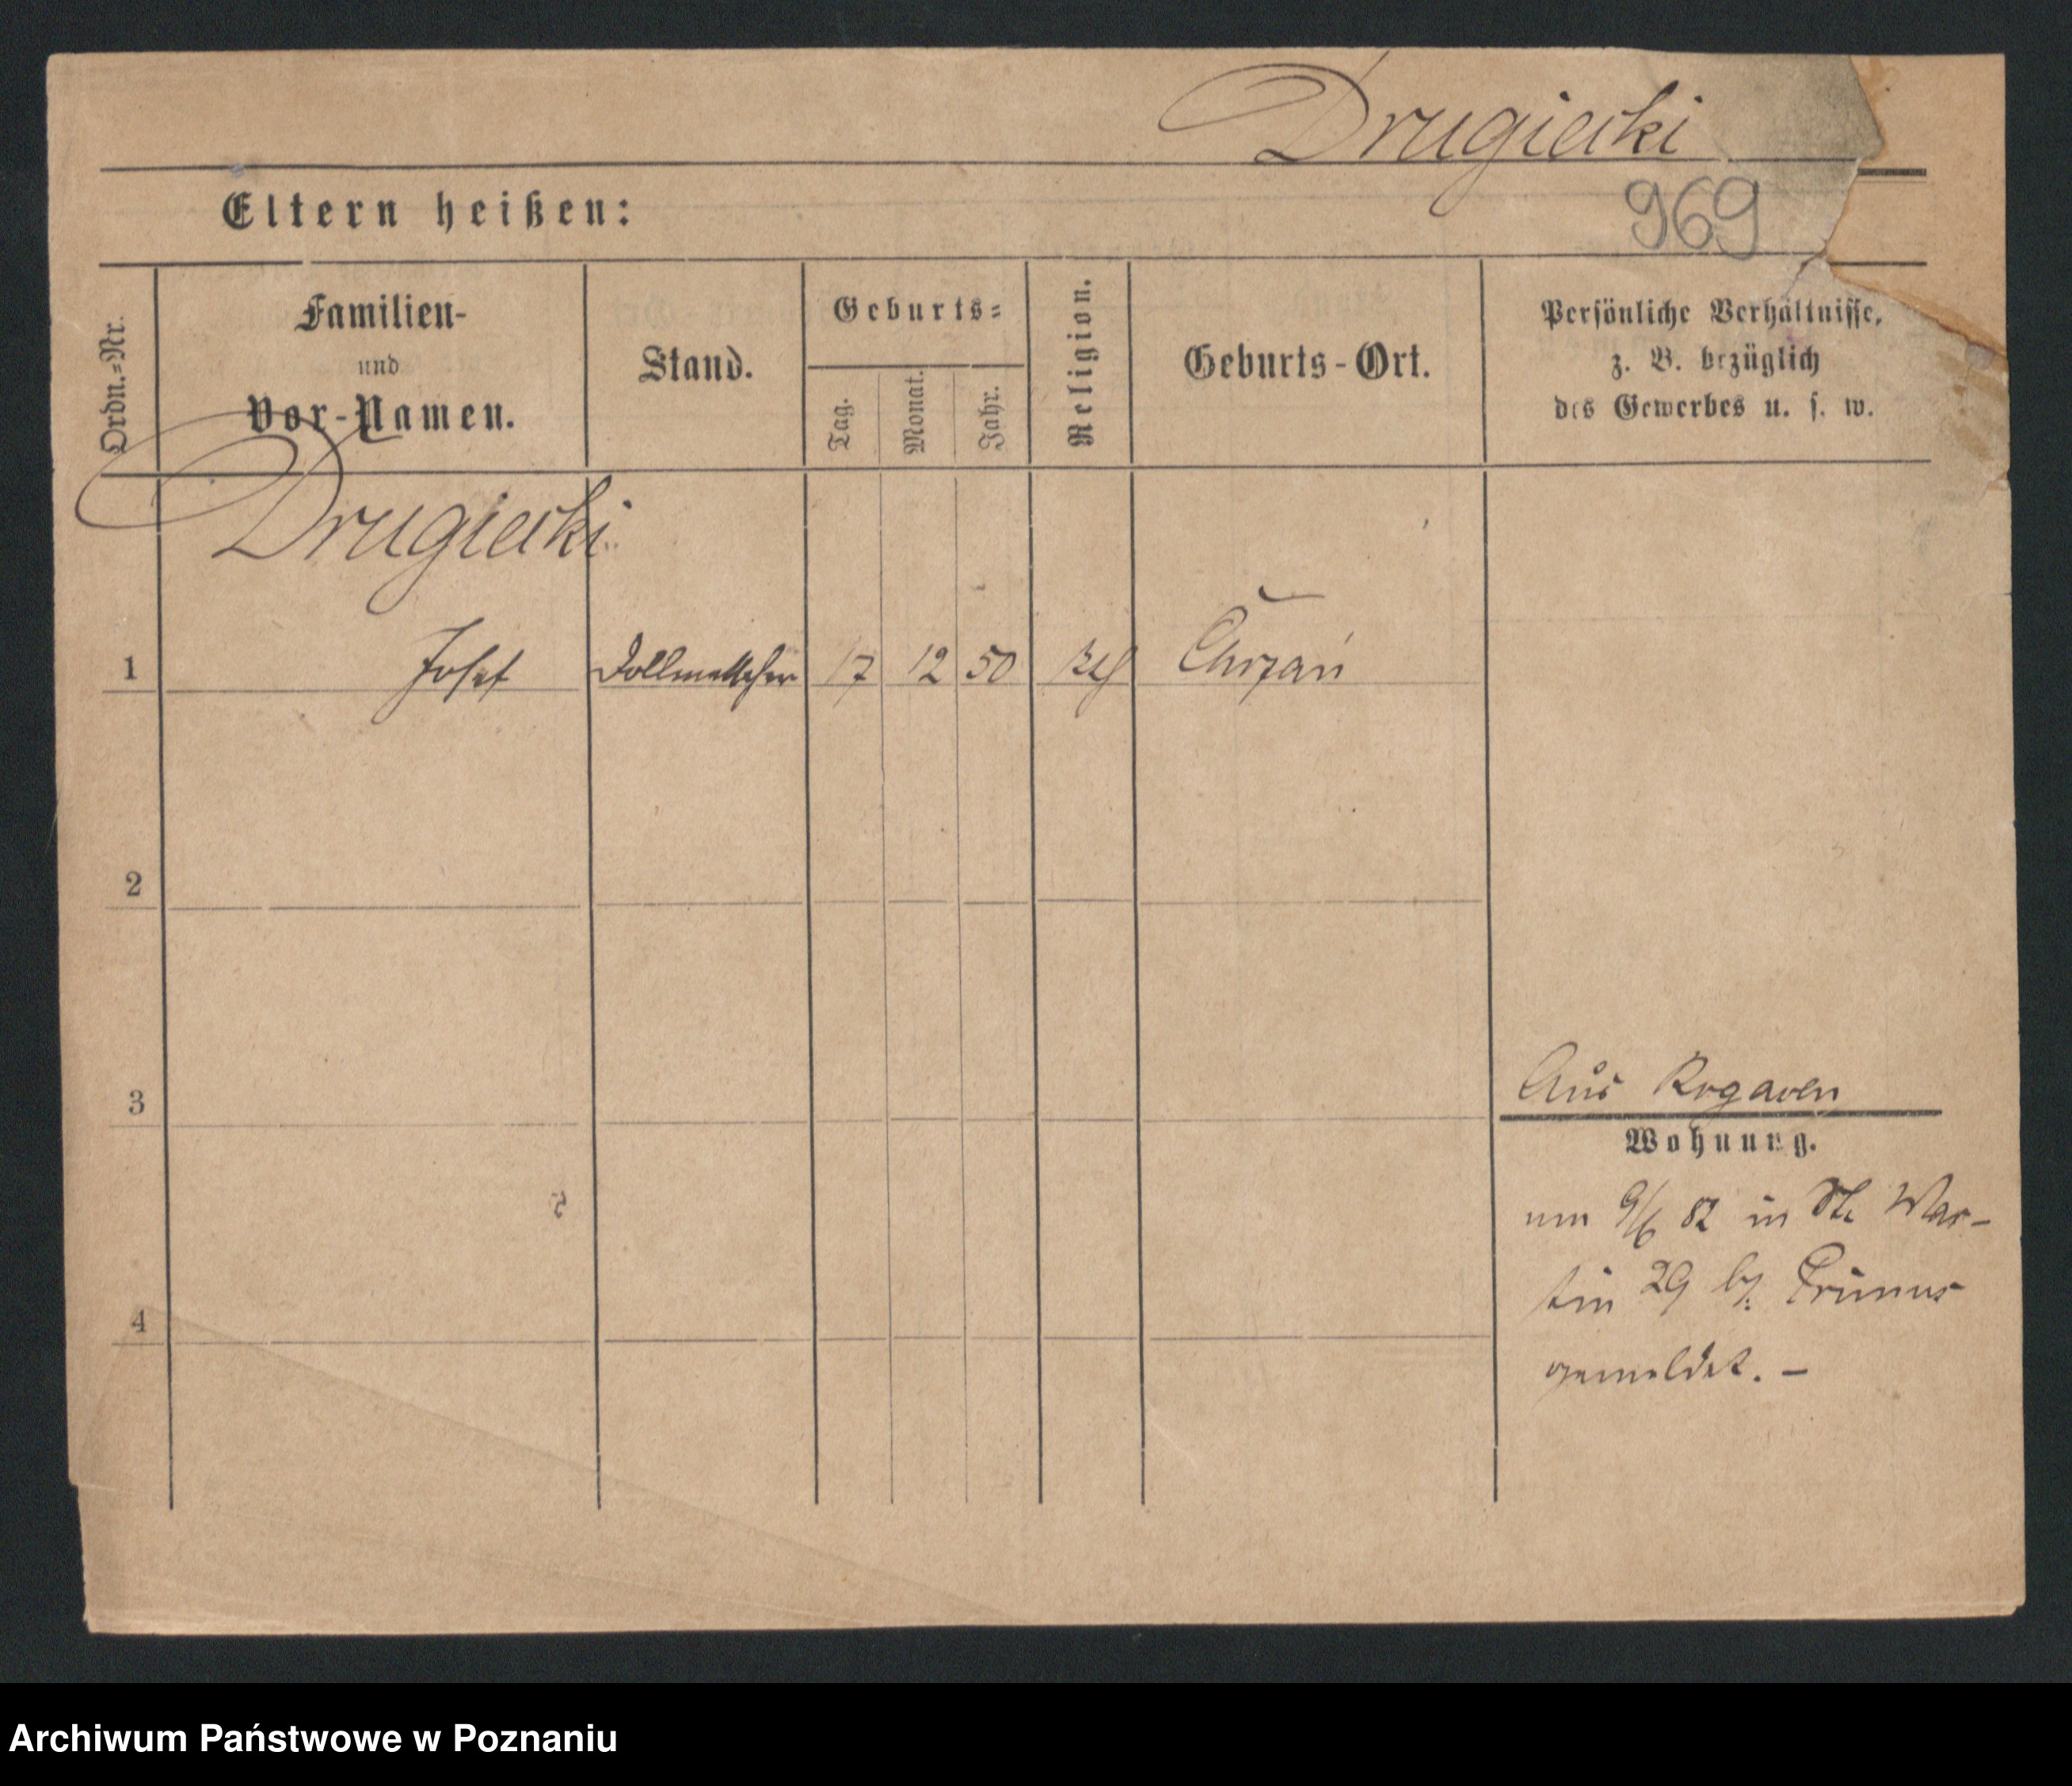 Drugiecki
Eltern heißen:
969
Ordn.-Nr.
Familien-
und
Vor-Namen.
Stand.
Geburts-
Tag.
Monat.
Jahr.
Religion.
Geburts-Ort.
Persönliche Verhältnisse,
z. B. bezüglich
des Gewerbes u. s. w.
Drugiecki
1 Josef Dollmetscher 17 12 50 Chrzan
2
3
Aus Rogasen
Wohnung.
4
9/6 82 in St. Mar-
tin 29 b/.
gemeldet. –
Archiwum Państwowe w Poznaniu